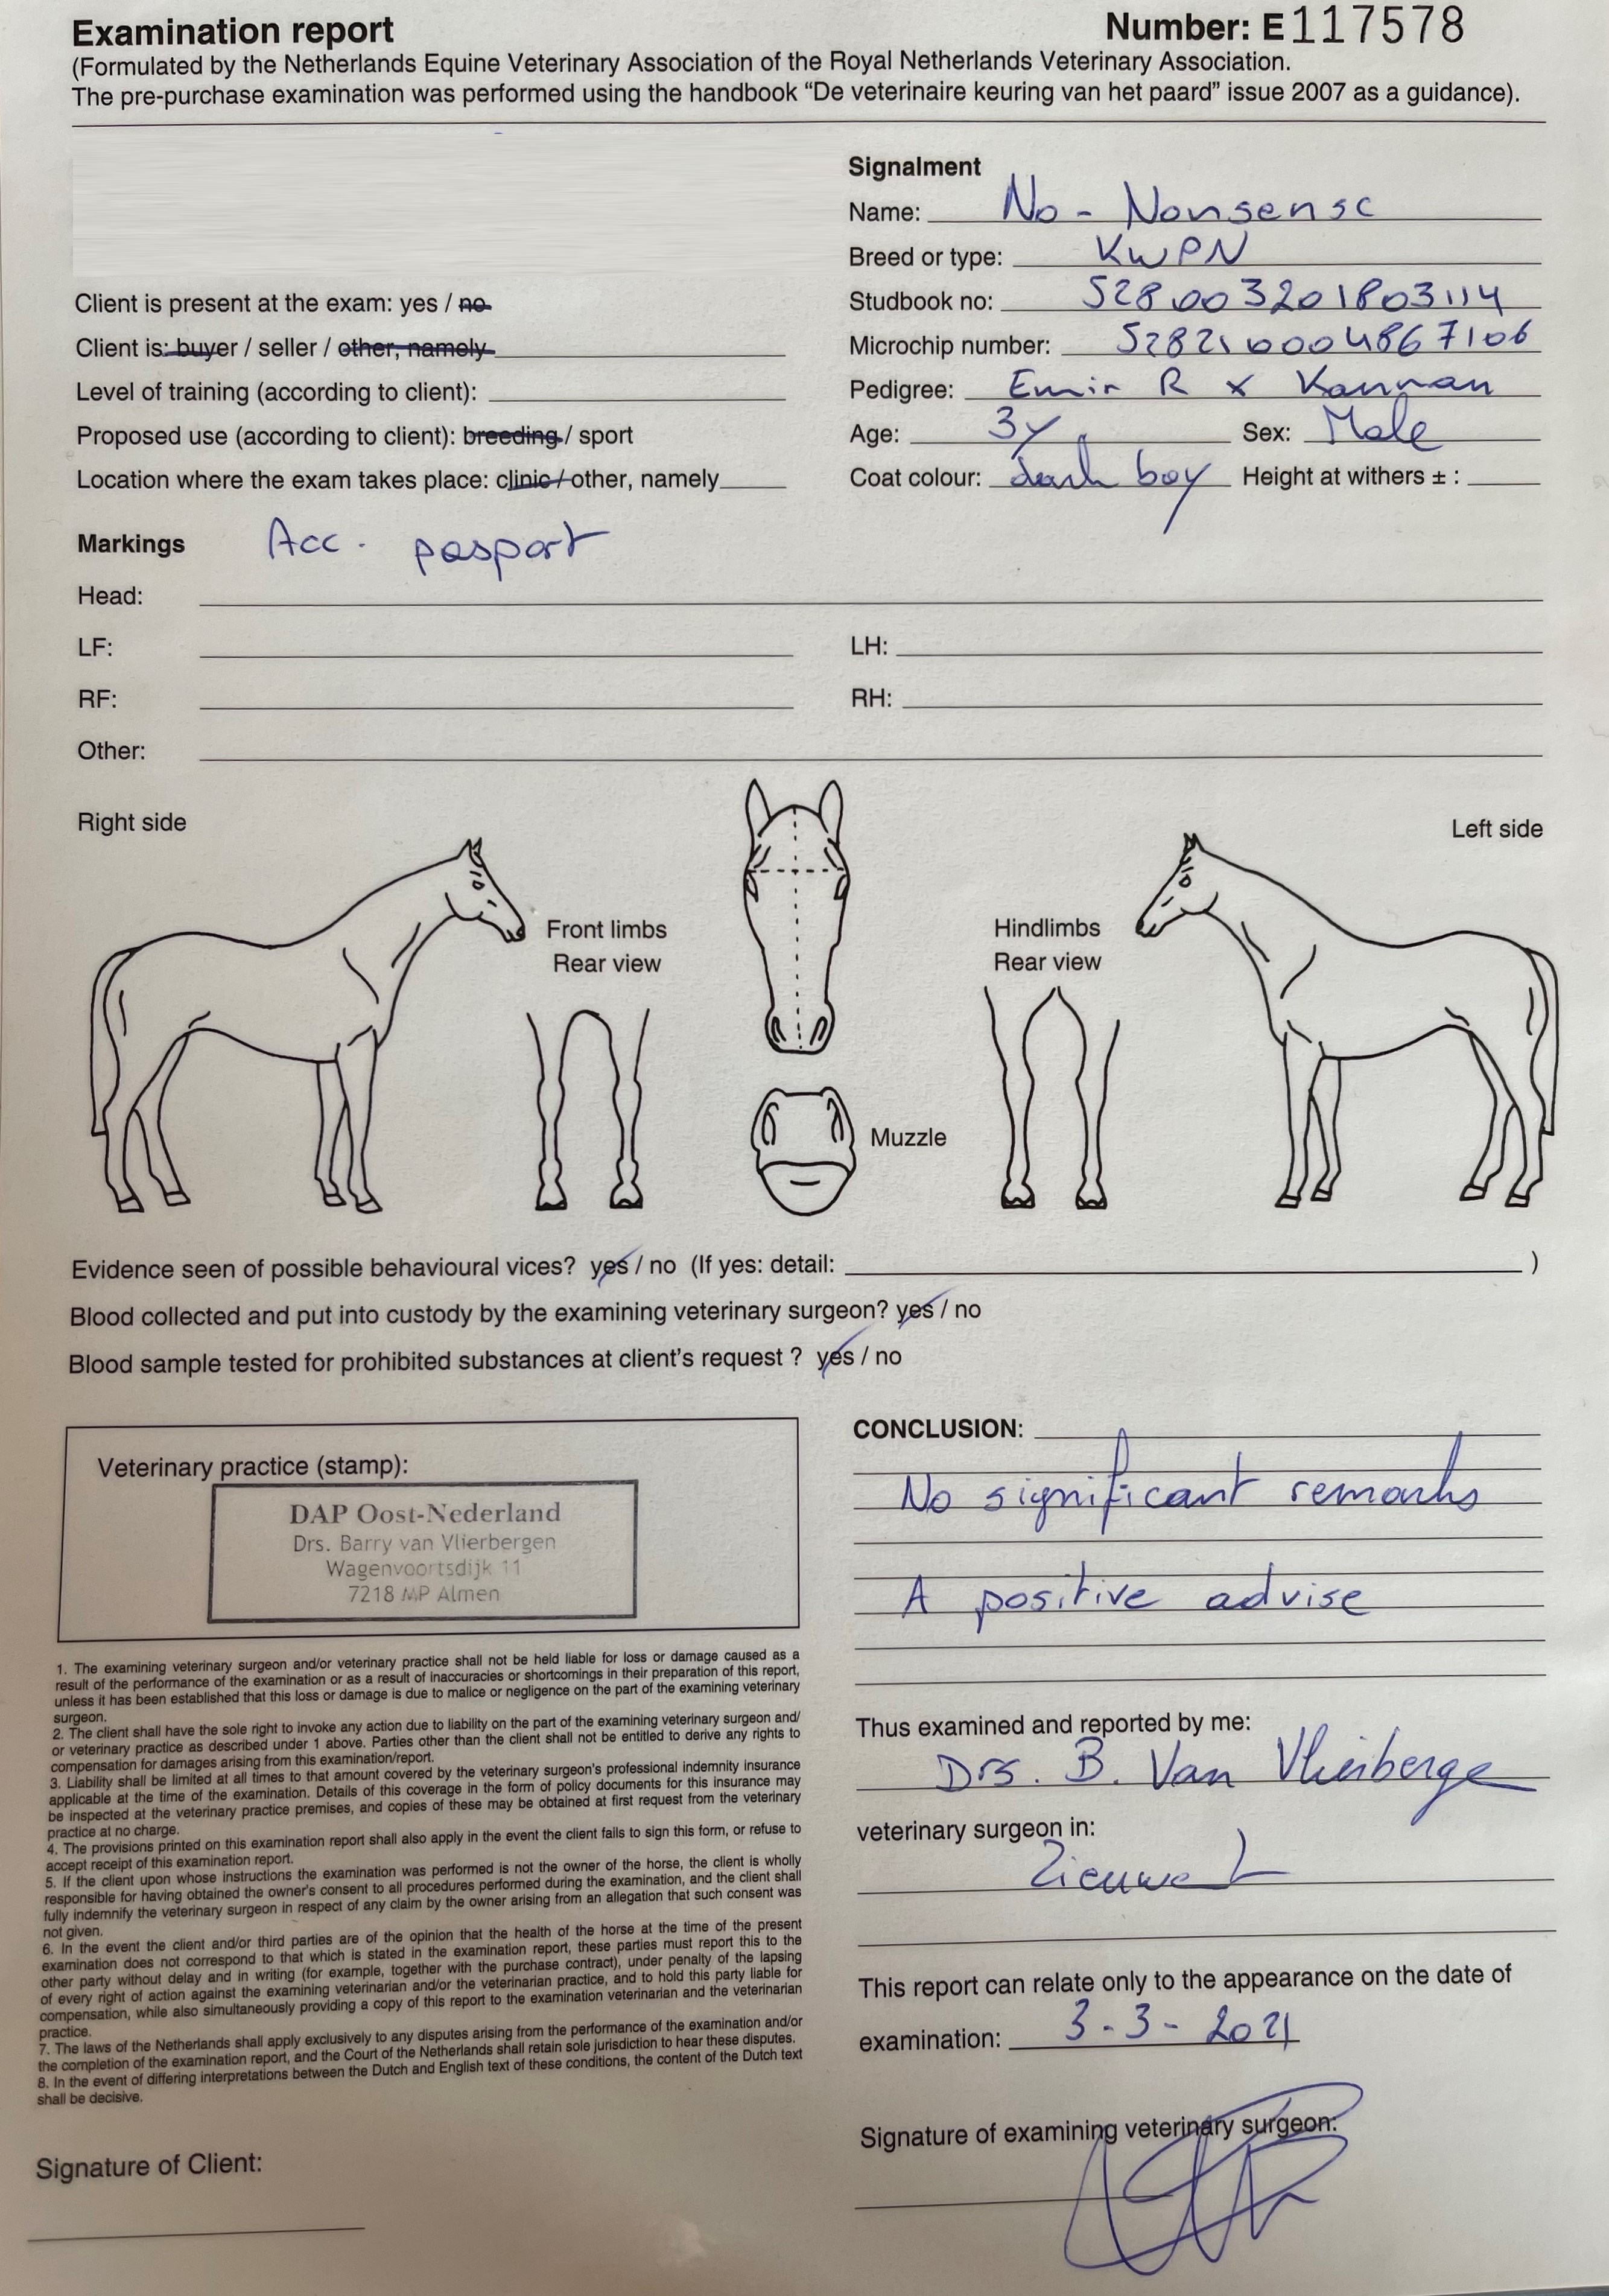 Examination report
Number: E117578
(Formulated by the Netherlands Equine Veterinary Association of the Royal Netherlands Veterinary Association.
The pre-purchase examination was performed using the handbook “De veterinaire keuring van het paard” issue 2007 as a guidance).
Client is present at the exam: yes / no
Client is: buyer / seller / other, namely
Level of training (according to client):
Proposed use (according to client): breeding / sport
Location where the exam takes place: clinic / other, namely
Signalment
Name: No - Nonsense
Breed or type: KWPN
Studbook no: 528003201803114
Microchip number: 528210004867106
Pedigree: Emir R x Kannan
Age: 3y Sex: Male
Coat colour: dark bay Height at withers ± :
Markings Acc. pasport
Head:
LF: LH:
RF: RH:
Other:
Right side
Left side
Front limbs
Rear view
Hindlimbs
Rear view
Muzzle
Evidence seen of possible behavioural vices? yes / no (If yes: detail: )
Blood collected and put into custody by the examining veterinary surgeon? yes / no
Blood sample tested for prohibited substances at client's request ? yes / no
Veterinary practice (stamp):
DAP Oost-Nederland
Drs. Barry van Vlierbergen
Wagenvoortsdijk 11
7218 MP Almen
1. The examining veterinary surgeon and/or veterinary practice shall not be held liable for loss or damage caused as a
result of the performance of the examination or as a result of inaccuracies or shortcomings in their preparation of this report,
unless it has been established that this loss or damage is due to malice or negligence on the part of the examining veterinary
surgeon.
2. The client shall have the sole right to invoke any action due to liability on the part of the examining veterinary surgeon and/
or veterinary practice as described under 1 above. Parties other than the client shall not be entitled to derive any rights to
compensation for damages arising from this examination/report.
3. Liability shall be limited at all times to that amount covered by the veterinary surgeon's professional indemnity insurance
applicable at the time of the examination. Details of this coverage in the form of policy documents for this insurance may
be inspected at the veterinary practice premises, and copies of these may be obtained at first request from the veterinary
practice at no charge.
4. The provisions printed on this examination report shall also apply in the event the client fails to sign this form, or refuse to
accept receipt of this examination report.
5. If the client upon whose instructions the examination was performed is not the owner of the horse, the client is wholly
responsible for having obtained the owner's consent to all procedures performed during the examination, and the client shall
fully indemnify the veterinary surgeon in respect of any claim by the owner arising from an allegation that such consent was
not given.
6. In the event the client and/or third parties are of the opinion that the health of the horse at the time of the present
examination does not correspond to that which is stated in the examination report, these parties must report this to the
other party without delay and in writing (for example, together with the purchase contract), under penalty of the lapsing
of every right of action against the examining veterinarian and/or the veterinarian practice, and to hold this party liable for
compensation, while also simultaneously providing a copy of this report to the examination veterinarian and the veterinarian
practice.
7. The laws of the Netherlands shall apply exclusively to any disputes arising from the performance of the examination and/or
the completion of the examination report, and the Court of the Netherlands shall retain sole jurisdiction to hear these disputes.
8. In the event of differing interpretations between the Dutch and English text of these conditions, the content of the Dutch text
shall be decisive.
Signature of Client:
CONCLUSION:
No significant remarks
A positive advise
Thus examined and reported by me:
Drs. B. Van Vlierberge
veterinary surgeon in:
Zieuwent
This report can relate only to the appearance on the date of
examination: 3-3-2021
Signature of examining veterinary surgeon: